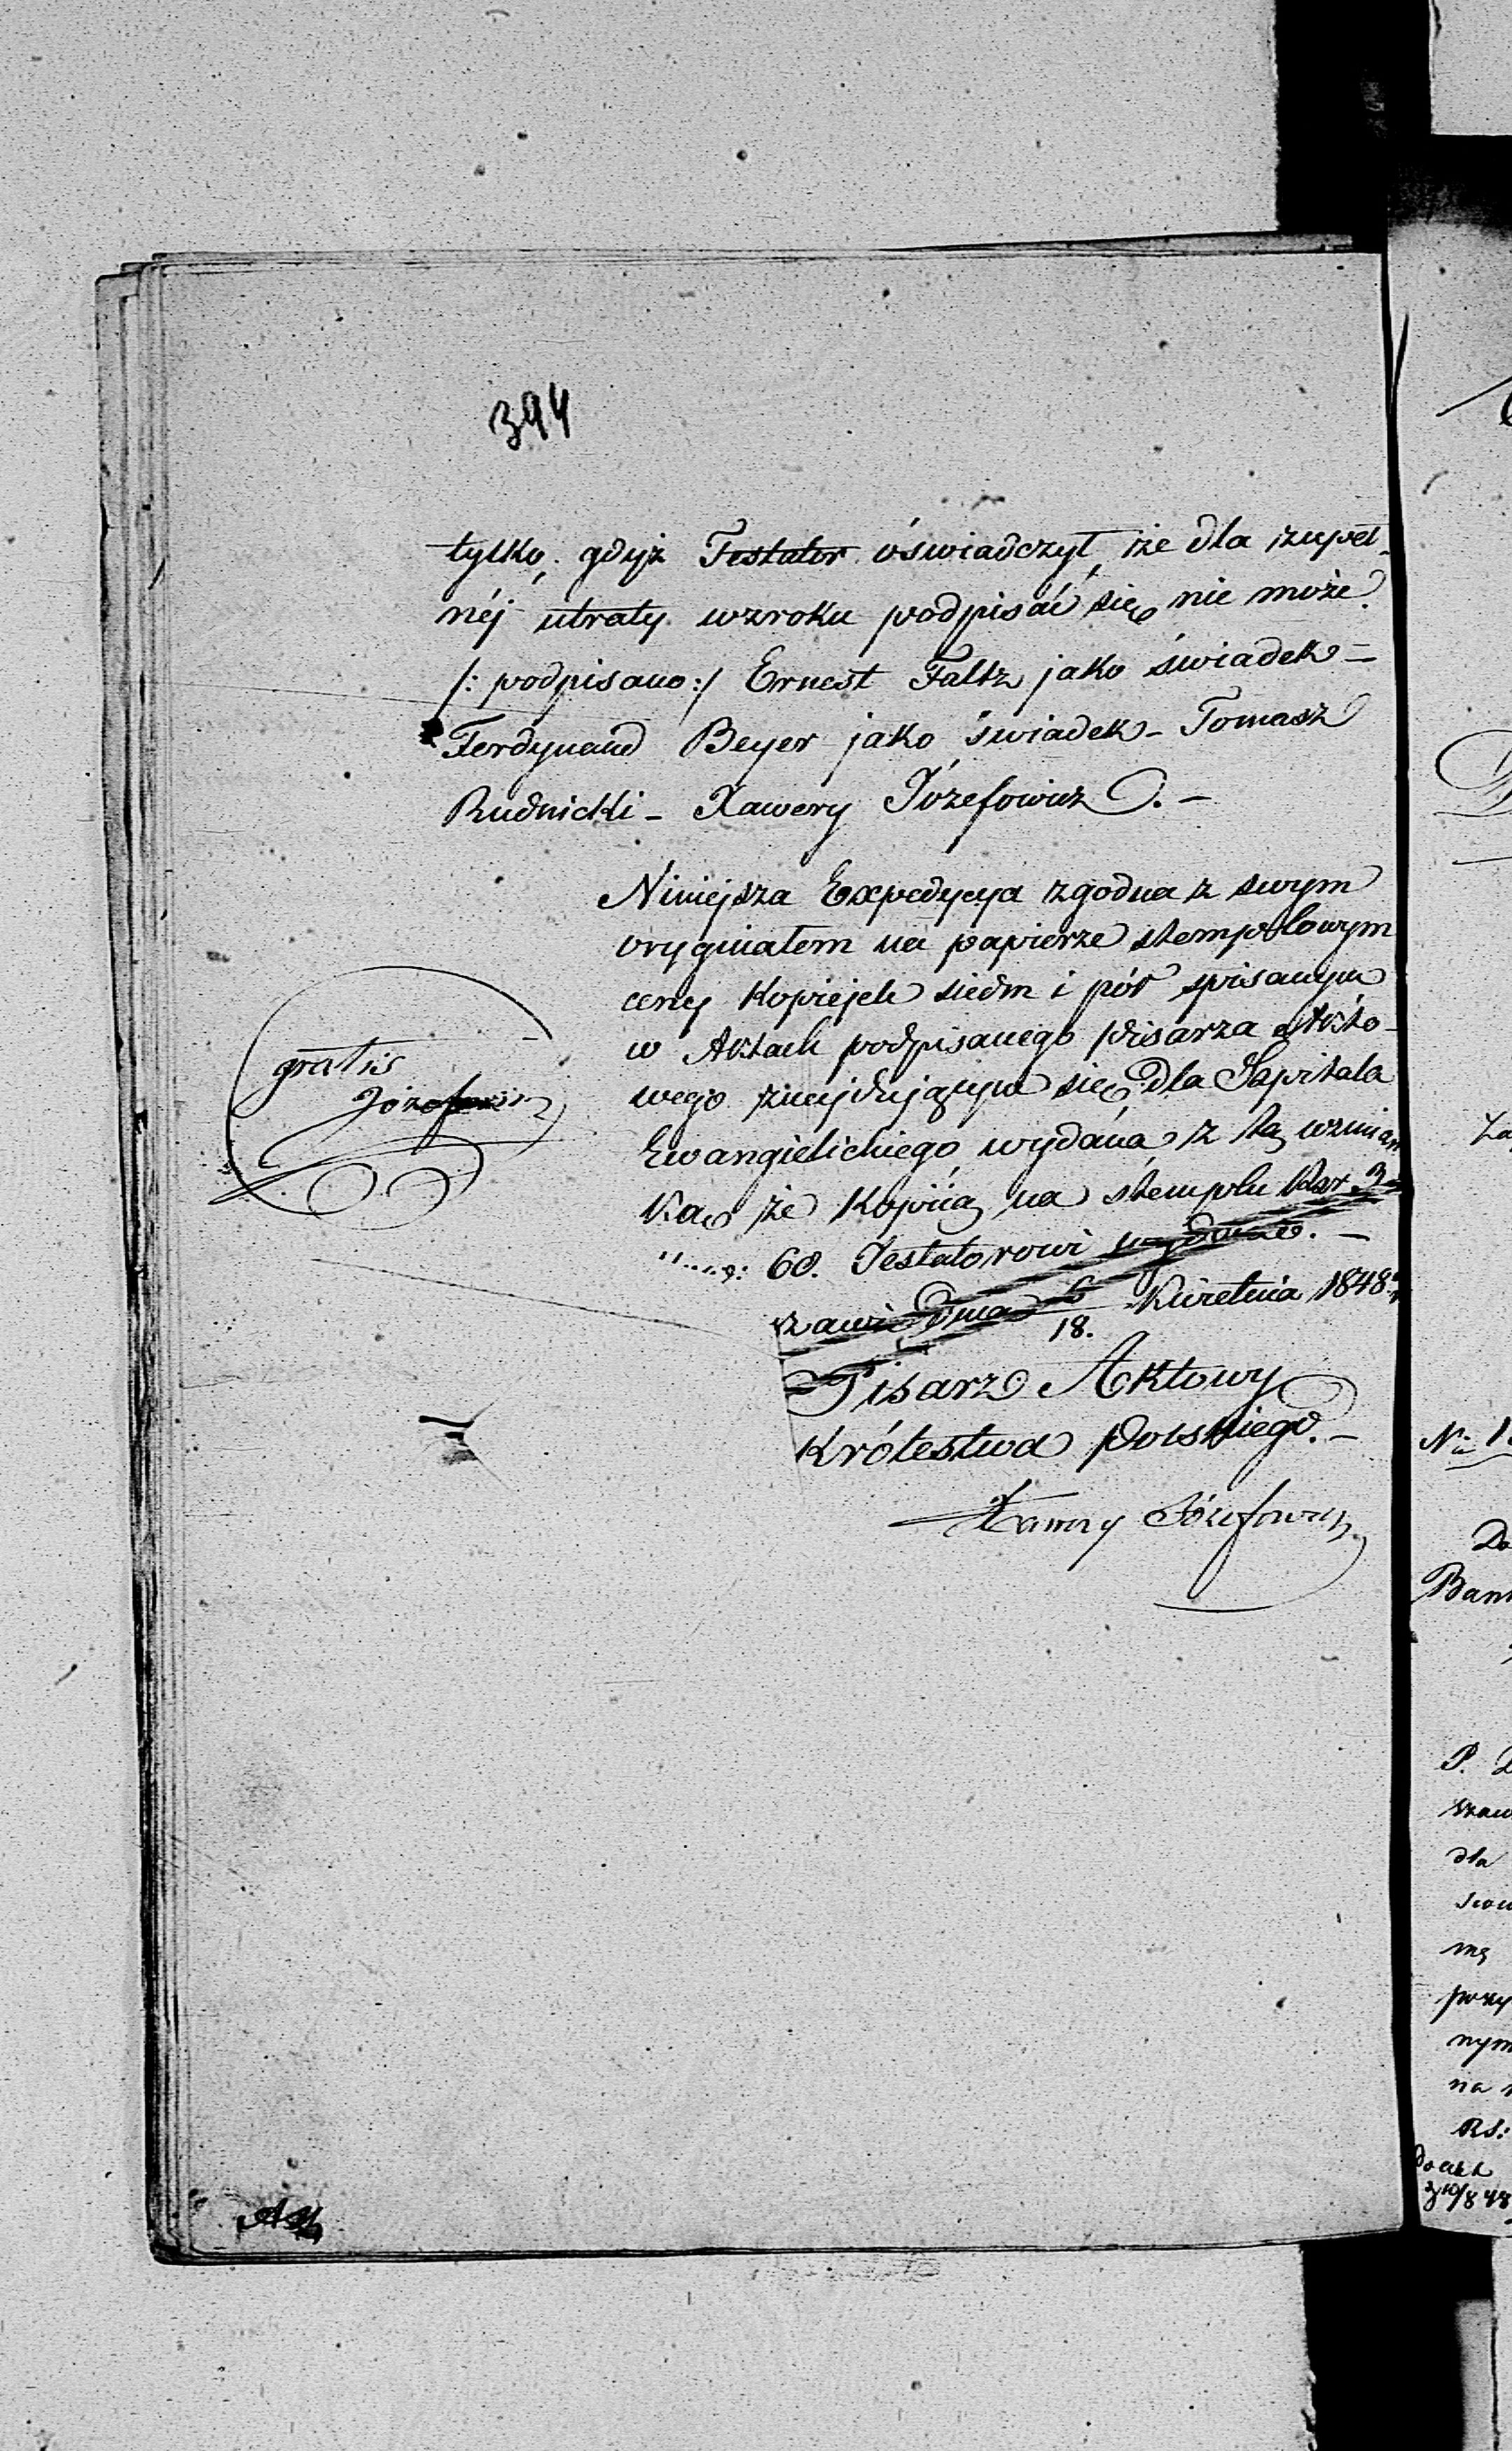 394
tylko, gdyż Testator oświadczył, że dla zupeł-
néj utraty wzroku podpisać się nie może.
/: podpisano :/ Ernest Faltz jako świadek –
Ferdynand Beyer jako świadek – Tomasz
Rudnicki – Xawery Józefowicz. –
Niniejsza Expedycya zgodna z swym
oryginałem na papierze stemplowym
ceny kopiejek siedm i pół spisanym
w Aktach podpisanego Pisarza Akto-
wego znajdującym się dla Szpitala
Ewangielickiego wydana, z tą wzmian
ką, że kopiią na stemplu
60. Testatorowi wydano. –
dnia 6/18. Kwietnia 1848
Pisarz Aktowy
Królestwa Polskiego. –
Xawery Józefowicz
gratis
Józefowicz
Ba
P.
dla
mą
nym
na
RS: